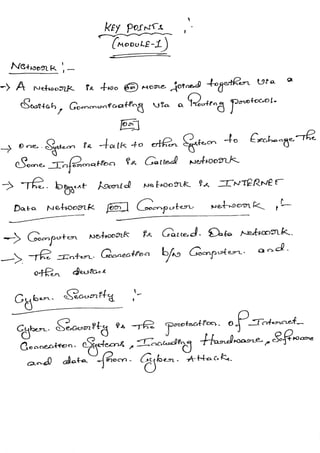 KEY POINTS :-
(MODULE-1)
Network :-
-> A Network is two or More joined together via a
Switch, Communicating via a Routing protocol.
[or]
-> One System is talk to other System to Exchange The
Some Information is Called Network
-> The bigest world Network is INTERNET
Data Network [or] Computer network :-
-> Computer Network is Called Data Network.
-> The Inter Connection b/w Computer and
other device
Cyber Security :-
Cyber Security is The protection of Internet
Connection Systems, Including Hardware, Software
and data from Cyber Attack.